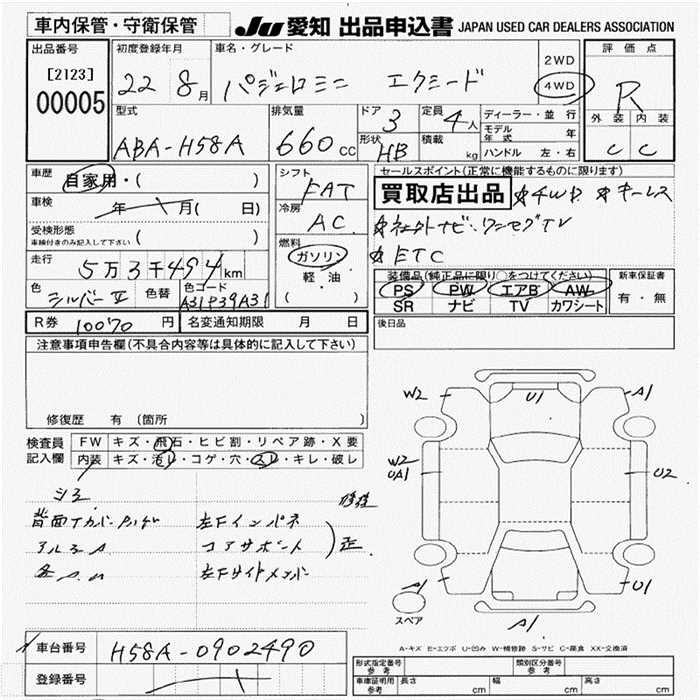 車内保管・守衛保管
JU 愛知 出品申込書 JAPAN USED CAR DEALERS ASSOCIATION
出品番号
[2123]
00005
初度登録年月
22 8月
車名・グレード
パジェロミニ エクシード
2WD
4WD
評価点
R
外装 内装
C C
型式
ABA-H58A
排気量
660cc
ドア
3
形状
HB
定員
4人
積載
kg
ディーラー・並行
モデル年式 年
ハンドル 左・右
車歴
自家用・( )
車検
年 月( 日)
受検形態
車検付きのみ記入して下さい ( )
走行
5万3千494km
色
シルバーII
色替
色コード
A31P39A31
シフト
FAT
冷房
AC
燃料
ガソリン
軽・油
( )
セールスポイント(正常に機能するものに限ります)
買取店出品 ☆4WD ☆キーレス
☆社外ナビ・ワンセグTV
☆ETC
装備品(純正品に限り○をつけてください)
PS PW エアB AW
SR ナビ TV カワシート
新車保証書
有・無
R券 10070円
名変通知期限 月 日
後日品
注意事項申告欄(不具合内容等は具体的に記入して下さい)
修復歴 有 (箇所 )
検査員記入欄
FW キズ・飛石・ヒビ割・リペア跡・X要
内装 キズ・汚レ・コゲ・穴・スレ・キレ・破レ
シミ
背面タイヤカバー
アルミA
左Fインパネ
コアサポート
左Fサイドメンバ
修復
歪
W2
U1
A1
W2
UA1
U2
A1
スペア
A1
U1
A-キズ E-エクボ U-凹み W-補修跡 S-サビ C-腐食 XX-交換済
車台番号 H58A-0902490
登録番号
形式指定番号
参考
類別区分番号
参考
車庫証明用
参考
長さ cm 幅 cm 高さ cm